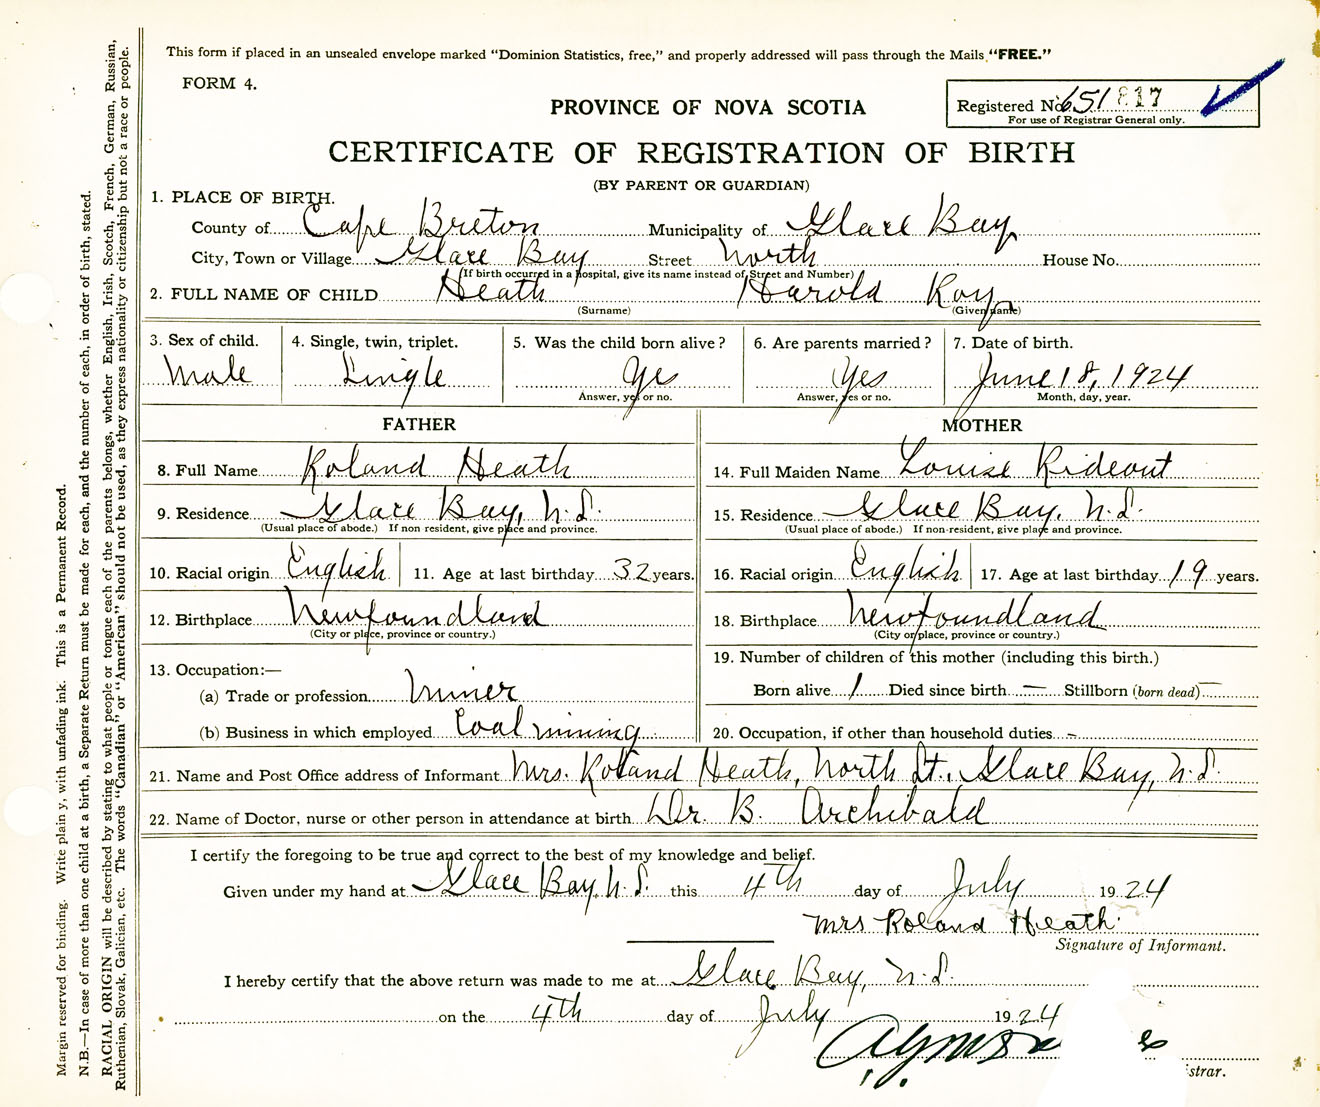 This form if placed in an unsealed envelope marked “Dominion Statistics, free,” and properly addressed will pass through the Mails “FREE.”
FORM 4.
Registered No. 651817
For use of Registrar General only.
PROVINCE OF NOVA SCOTIA
CERTIFICATE OF REGISTRATION OF BIRTH
(BY PARENT OR GUARDIAN)
1. PLACE OF BIRTH.
County of Cape Breton Municipality of Glace Bay
City, Town or Village Glace Bay Street North House No.
(If birth occurred in a hospital, give its name instead of Street and Number)
2. FULL NAME OF CHILD Heath Harold Roy
(Surname) (Given name)
3. Sex of child. 4. Single, twin, triplet. 5. Was the child born alive? 6. Are parents married? 7. Date of birth.
Male Single Yes Yes June 18, 1924
Answer, yes or no. Answer, yes or no. Month, day, year.
FATHER MOTHER
8. Full Name Roland Heath 14. Full Maiden Name Louise Rideout
9. Residence Glace Bay, N.S. 15. Residence Glace Bay, N.S.
(Usual place of abode.) If non resident, give place and province. (Usual place of abode.) If non-resident, give place and province.
10. Racial origin English 11. Age at last birthday 32 years. 16. Racial origin English 17. Age at last birthday 19 years.
12. Birthplace Newfoundland 18. Birthplace Newfoundland
(City or place, province or country.) (City or place, province or country.)
13. Occupation:— 19. Number of children of this mother (including this birth.)
(a) Trade or profession Miner Born alive 1 Died since birth — Stillborn (born dead) —
(b) Business in which employed Coal mining 20. Occupation, if other than household duties -
21. Name and Post Office address of Informant Mrs. Roland Heath, North St., Glace Bay, N.S.
22. Name of Doctor, nurse or other person in attendance at birth Dr. B. Archibald
I certify the foregoing to be true and correct to the best of my knowledge and belief.
Given under my hand at Glace Bay, N.S. this 4th day of July 1924
Mrs Roland Heath
Signature of Informant.
I hereby certify that the above return was made to me at Glace Bay, N.S.
on the 4th day of July 1924
strar.
Margin reserved for binding. Write plain y, with unfading ink. This is a Permanent Record.
N.B.—In case of more than one child at a birth, a Separate Return must be made for each, and the number of each, in order of birth, stated.
RACIAL ORIGIN will be described by stating to what people or tongue each of the parents belongs, whether English, Irish, Scotch, French, German, Russian,
Ruthenian, Slovak, Galician, etc. The words “Canadian” or “American” should not be used, as they express nationality or citizenship but not a race or people.